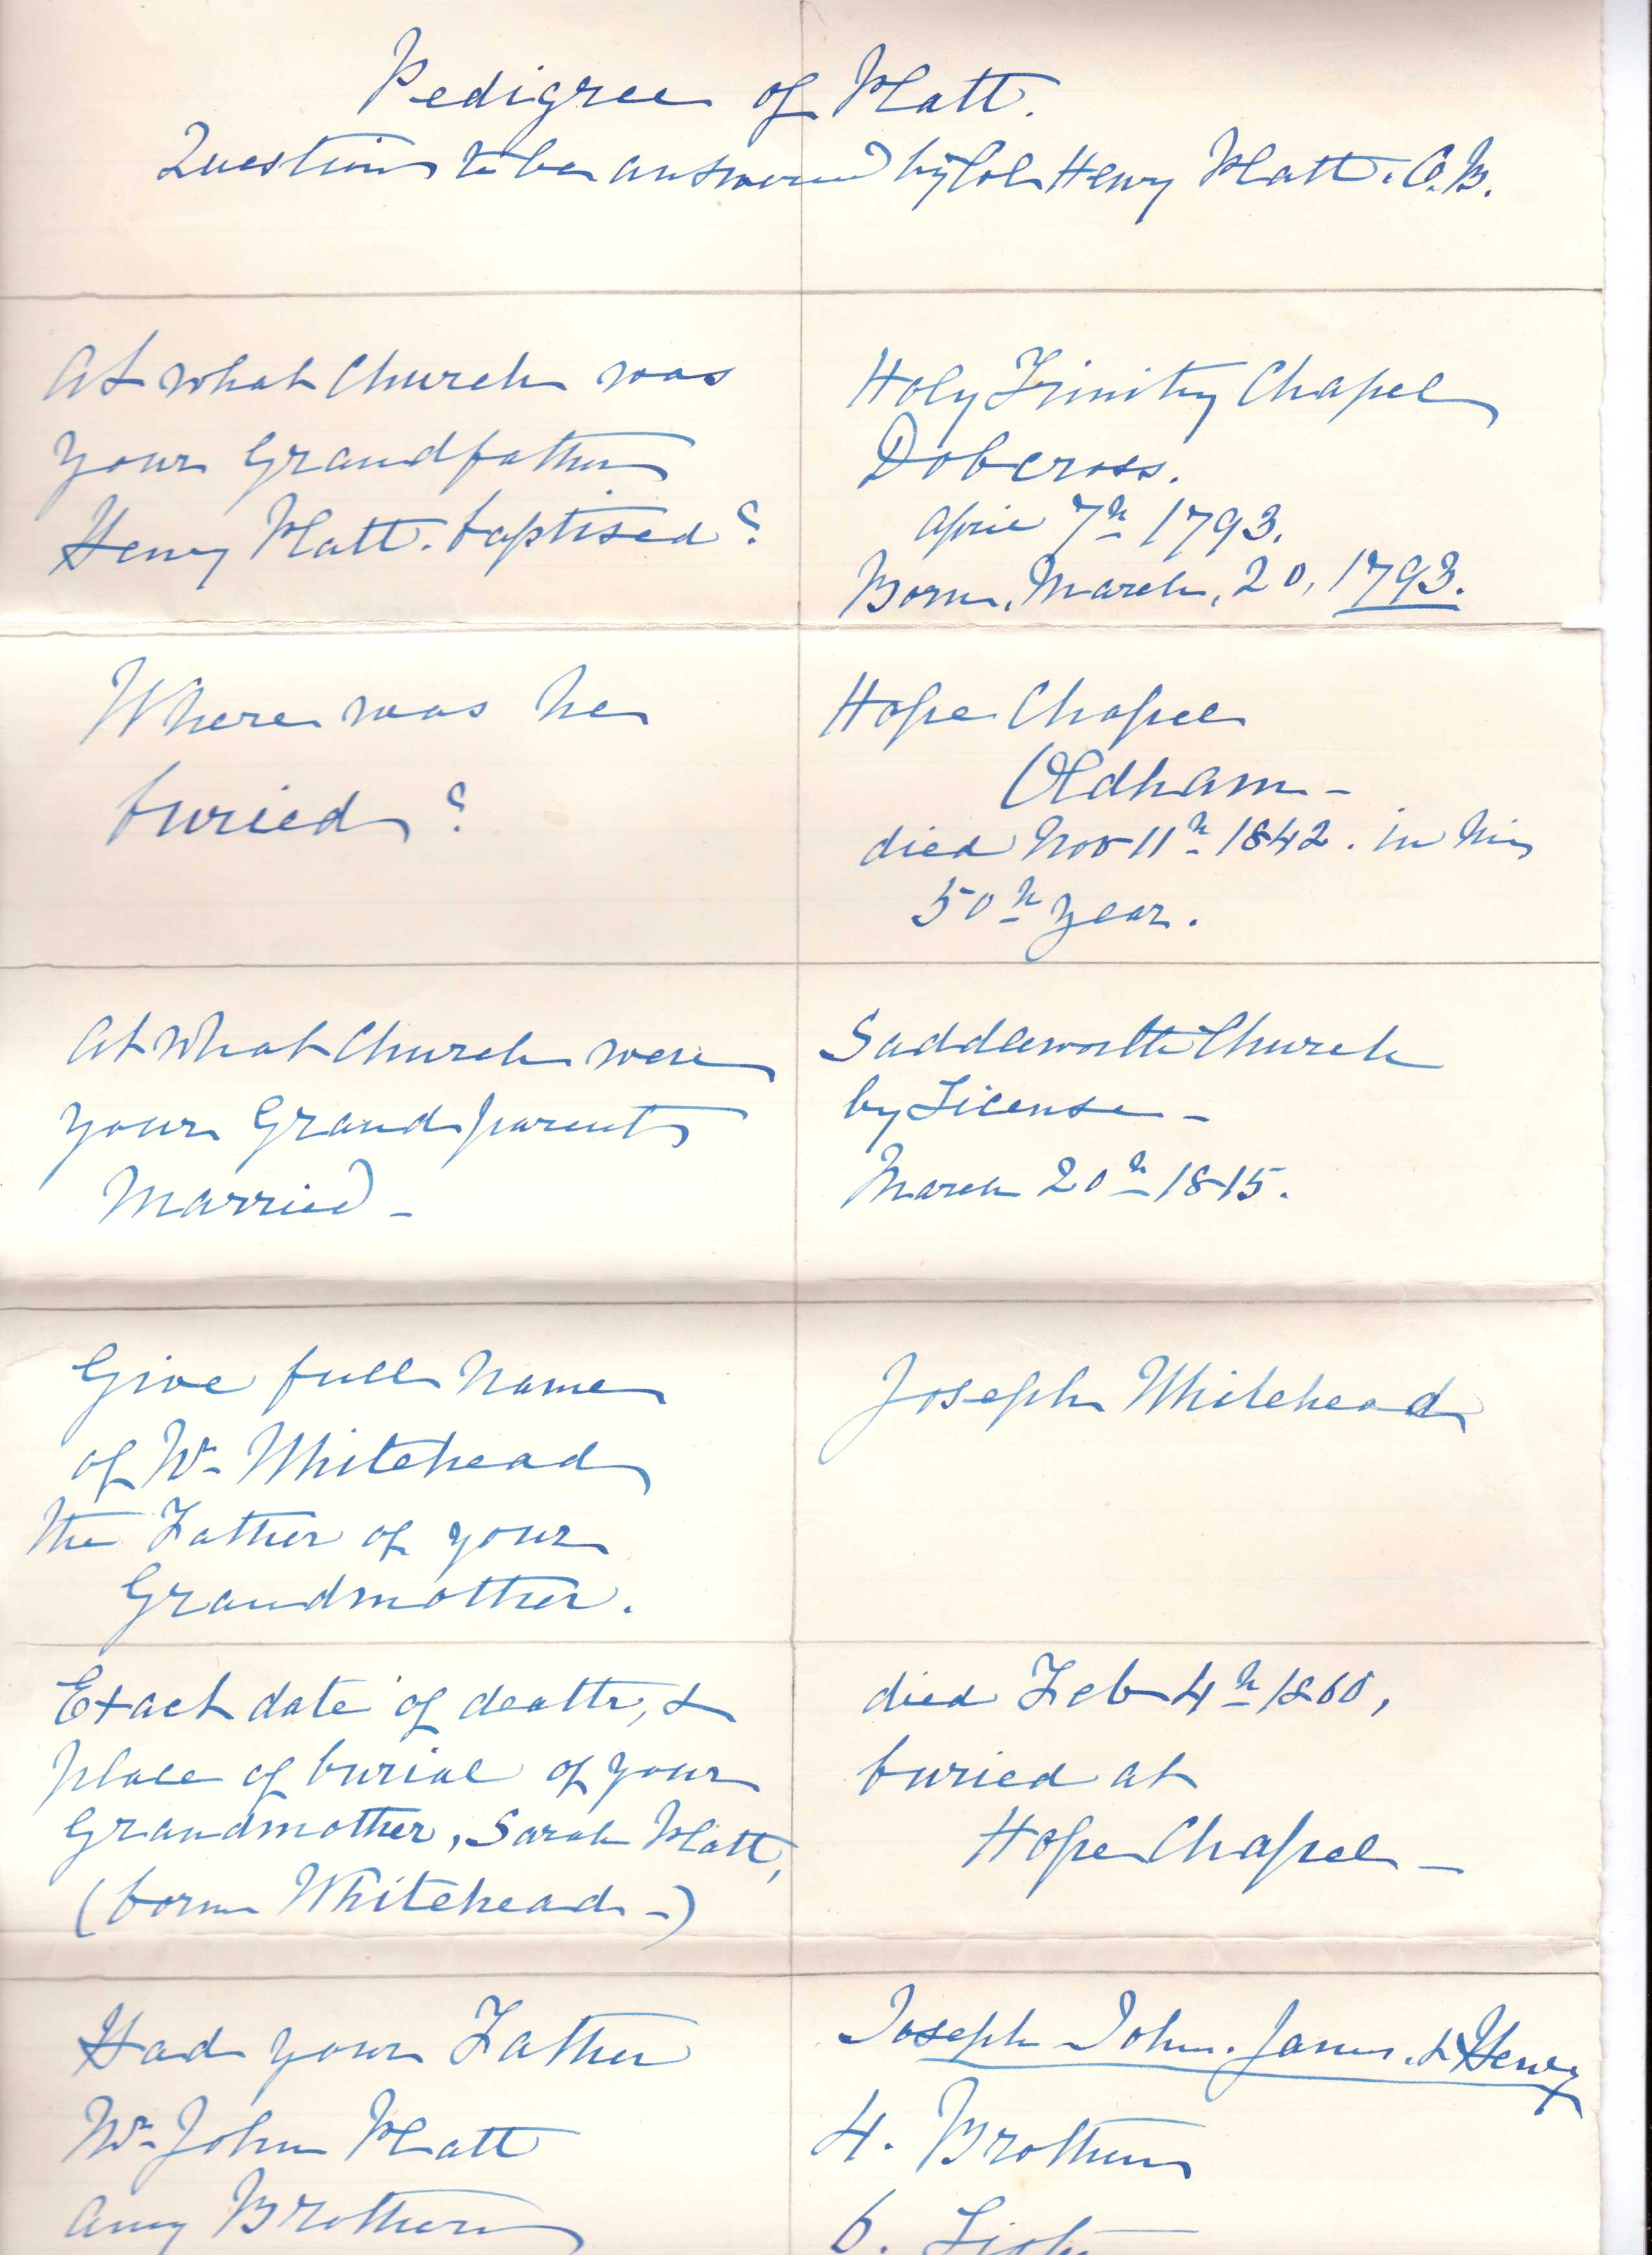 Pedigree of Platt.
Questions to be answered by Col Henry Platt. C.B.
At what Church was
your Grandfather
Henry Platt. baptised?
Holy Trinity Chapel
Dobcross.
April 7th 1793.
Born, March, 20, 1793.
Where was he
buried?
Hope Chapel
Oldham -
died Nov 11th 1842. in his
50th year.
At what Church were
your Grandparents
Married -
Saddleworth Church
by License -
March 20th 1815.
Give full name
of Mr Whitehead
the Father of your
Grandmother.
Joseph Whitehead
Exact date of death, &
place of burial of your
Grandmother, Sarah Platt,
(born Whitehead -)
died Feb 4th 1860,
buried at
Hope Chapel -
Had your Father
Mr John Platt
any Brothers
Joseph - John. James. & Henry
4. Brothers
6. Sisters